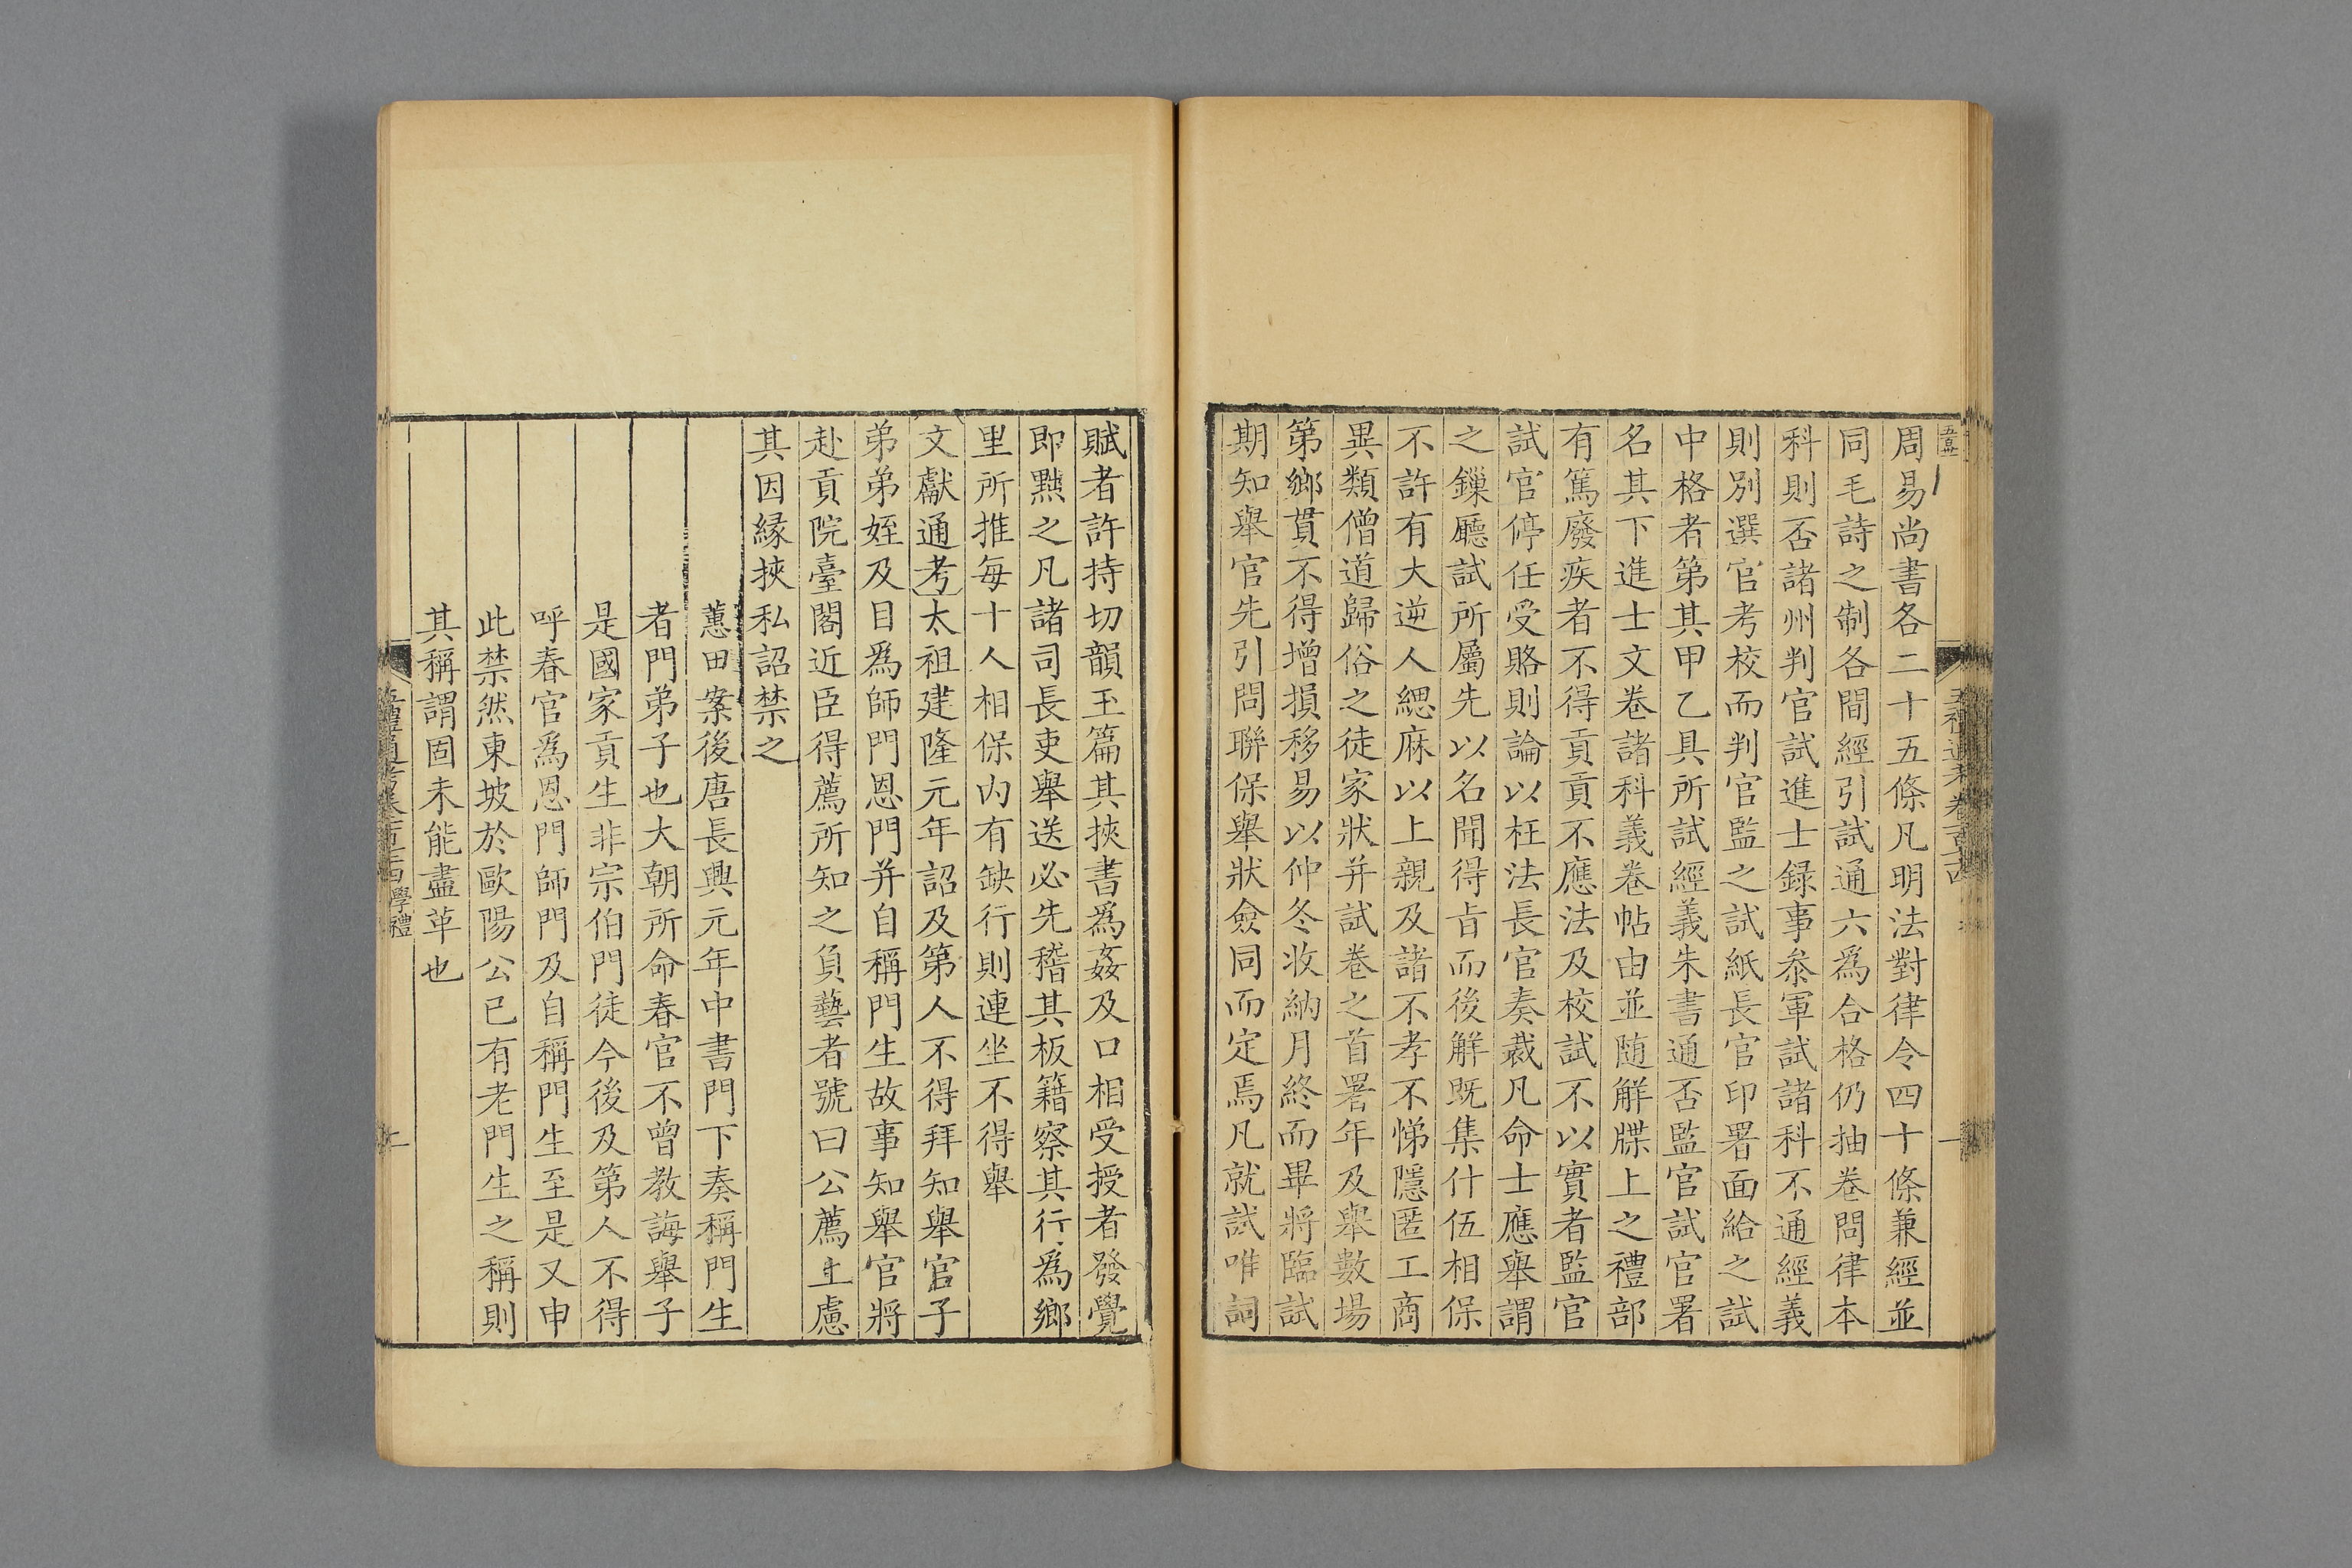 周易尚書各二十五條凡明法對律令四十條兼經並
同毛詩之制各間經引試通六為合格仍抽卷問律本
科則否諸州判官試進士録事叅軍試諸科不通經義
則別選官考校而判官監之試紙長官印署面給之試
中格者第其甲乙具所試經義朱書通否監官試官署
名其下進士文卷諸科義卷帖由並随解牒上之禮部
有篤廢疾者不得貢貢不應法及校試不以實者監官
試官停任受賂則論以枉法長官奏裁凡命士應舉謂
之鏁廳試所屬先以名聞得㫖而後解既集什伍相保
不許有大逆人緦麻以上親及諸不孝不悌隱匿工商
異類僧道歸俗之徒家狀并試卷之首署年及舉數場
第鄉貫不得增損移易以仲冬收納月終而畢將臨試
期知舉官先引問聯保舉狀僉同而定焉凡就試唯詞
賦者許持切韻玉篇其挾書為姦及口相受授者發覺
即黜之凡諸司長吏舉送必先稽其板籍察其行為鄉
里所推每十人相保内有缺行則連坐不得舉
文獻通考太祖建隆元年詔及第人不得拜知舉官子
弟弟姪及目為師門恩門并自稱門生故事知舉官將
赴貢院臺閣近臣得薦所知之負藝者號曰公薦上慮
其因緣挾私詔禁之
蕙田案後唐長興元年中書門下奏稱門生
者門弟子也大朝所命春官不曾教誨舉子
是國家貢生非宗伯門徒今後及第人不得
呼春官為恩門師門及自稱門生至是又申
此禁然東坡於歐陽公已有老門生之稱則
其稱謂固未能盡革也
五禮通考卷一百七十四 學禮